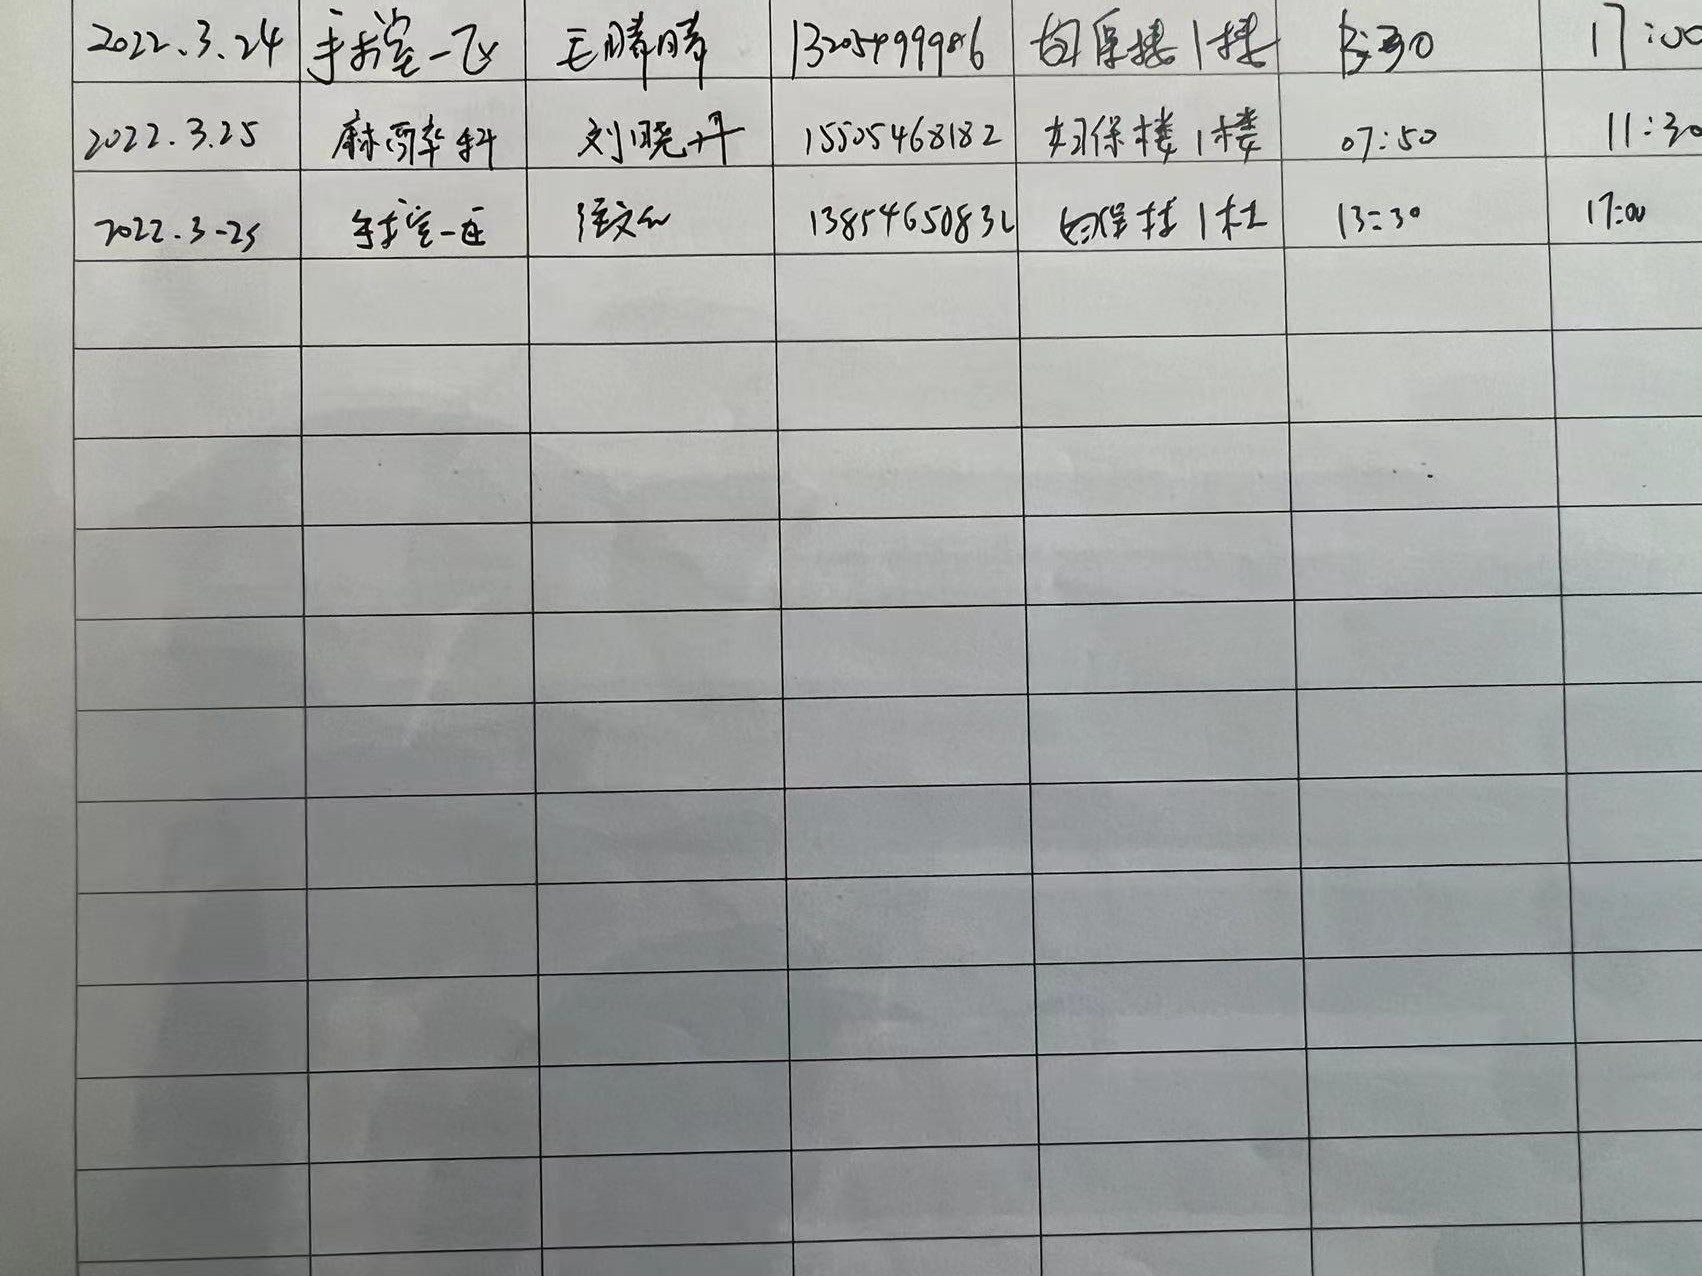 2022.3.24 手术室一区 毛晴晴 13205499986 妇保楼1楼 13:30 17:00
2022.3.25 麻醉科 刘晓丹 15505468182 妇保楼1楼 07:50 11:30
2022.3-25 手术室一区 13854650832 妇保楼1楼 13:30 17:00